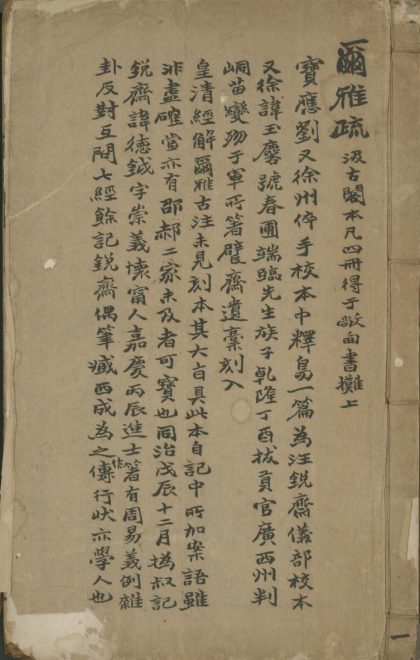 爾雅疏 汲古閣本凡四冊得于敝肉書攤上
寶應劉又徐州倅手校本中釋易一篇為汪銳齋儀部校本
又徐諱玉麐號春圃端臨先生族子乾隆丁酉拔貢官廣西州判
峒苗變歿于軍所箸甓齋遺稾刻入
皇清經解爾雅古注未見刻本其大恉具此本自記中所加案語雖
非盡確當亦有邵郝二家未及者可寶也同治戊辰十二月撝叔記
銳齋諱德鉞字崇義懷甯人嘉慶丙辰進士箸有周易義例雜
卦反對互圖七經餘記銳齋偶筆臧西成為之作傳行狀亦學人也
一